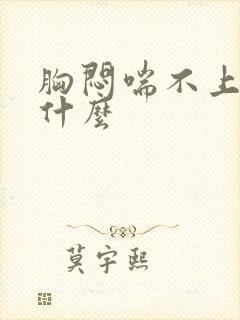 胸悶喘不上
什麼
莫宇熙